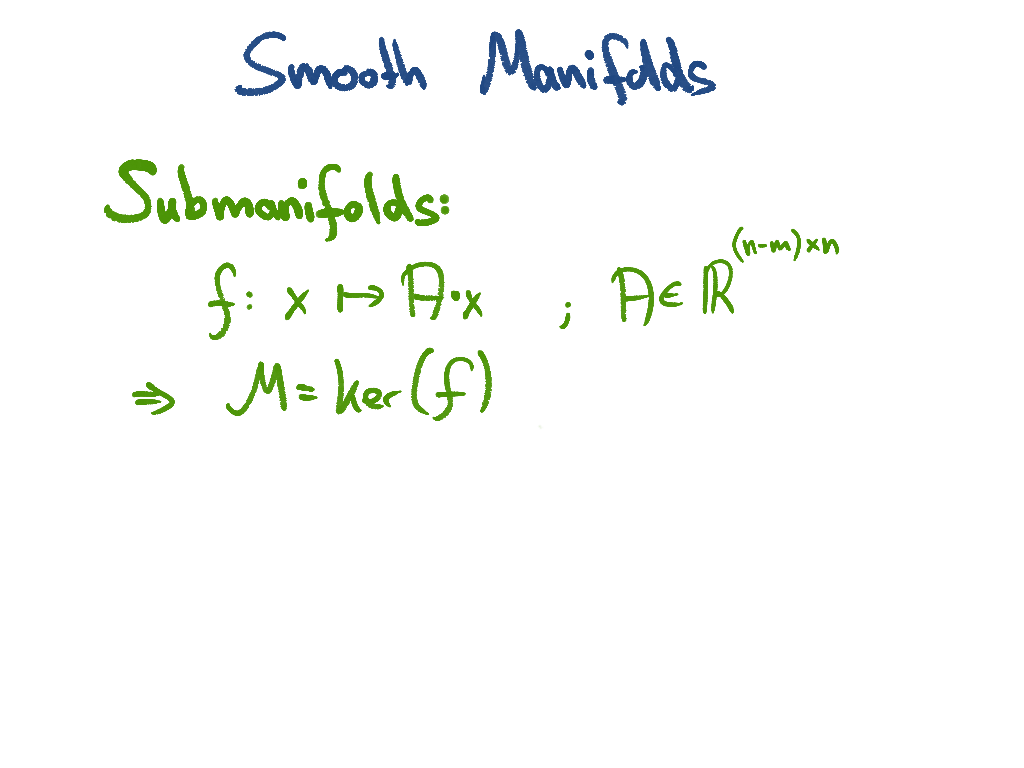 Smooth Manifolds
Submanifolds:
f: x ↦ A·x ; A ∈ ℝ^{(n-m)×n}
⇒ M = ker(f)